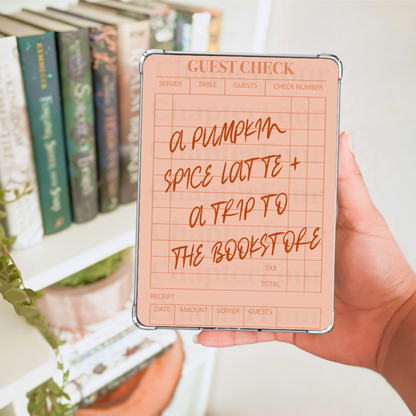 GUEST CHECK
SERVER TABLE GUESTS CHECK NUMBER
A PUMPKIN
SPICE LATTE +
A TRIP TO
THE BOOKSTORE
TAX
TOTAL
RECEIPT
DATE AMOUNT SERVER GUESTS